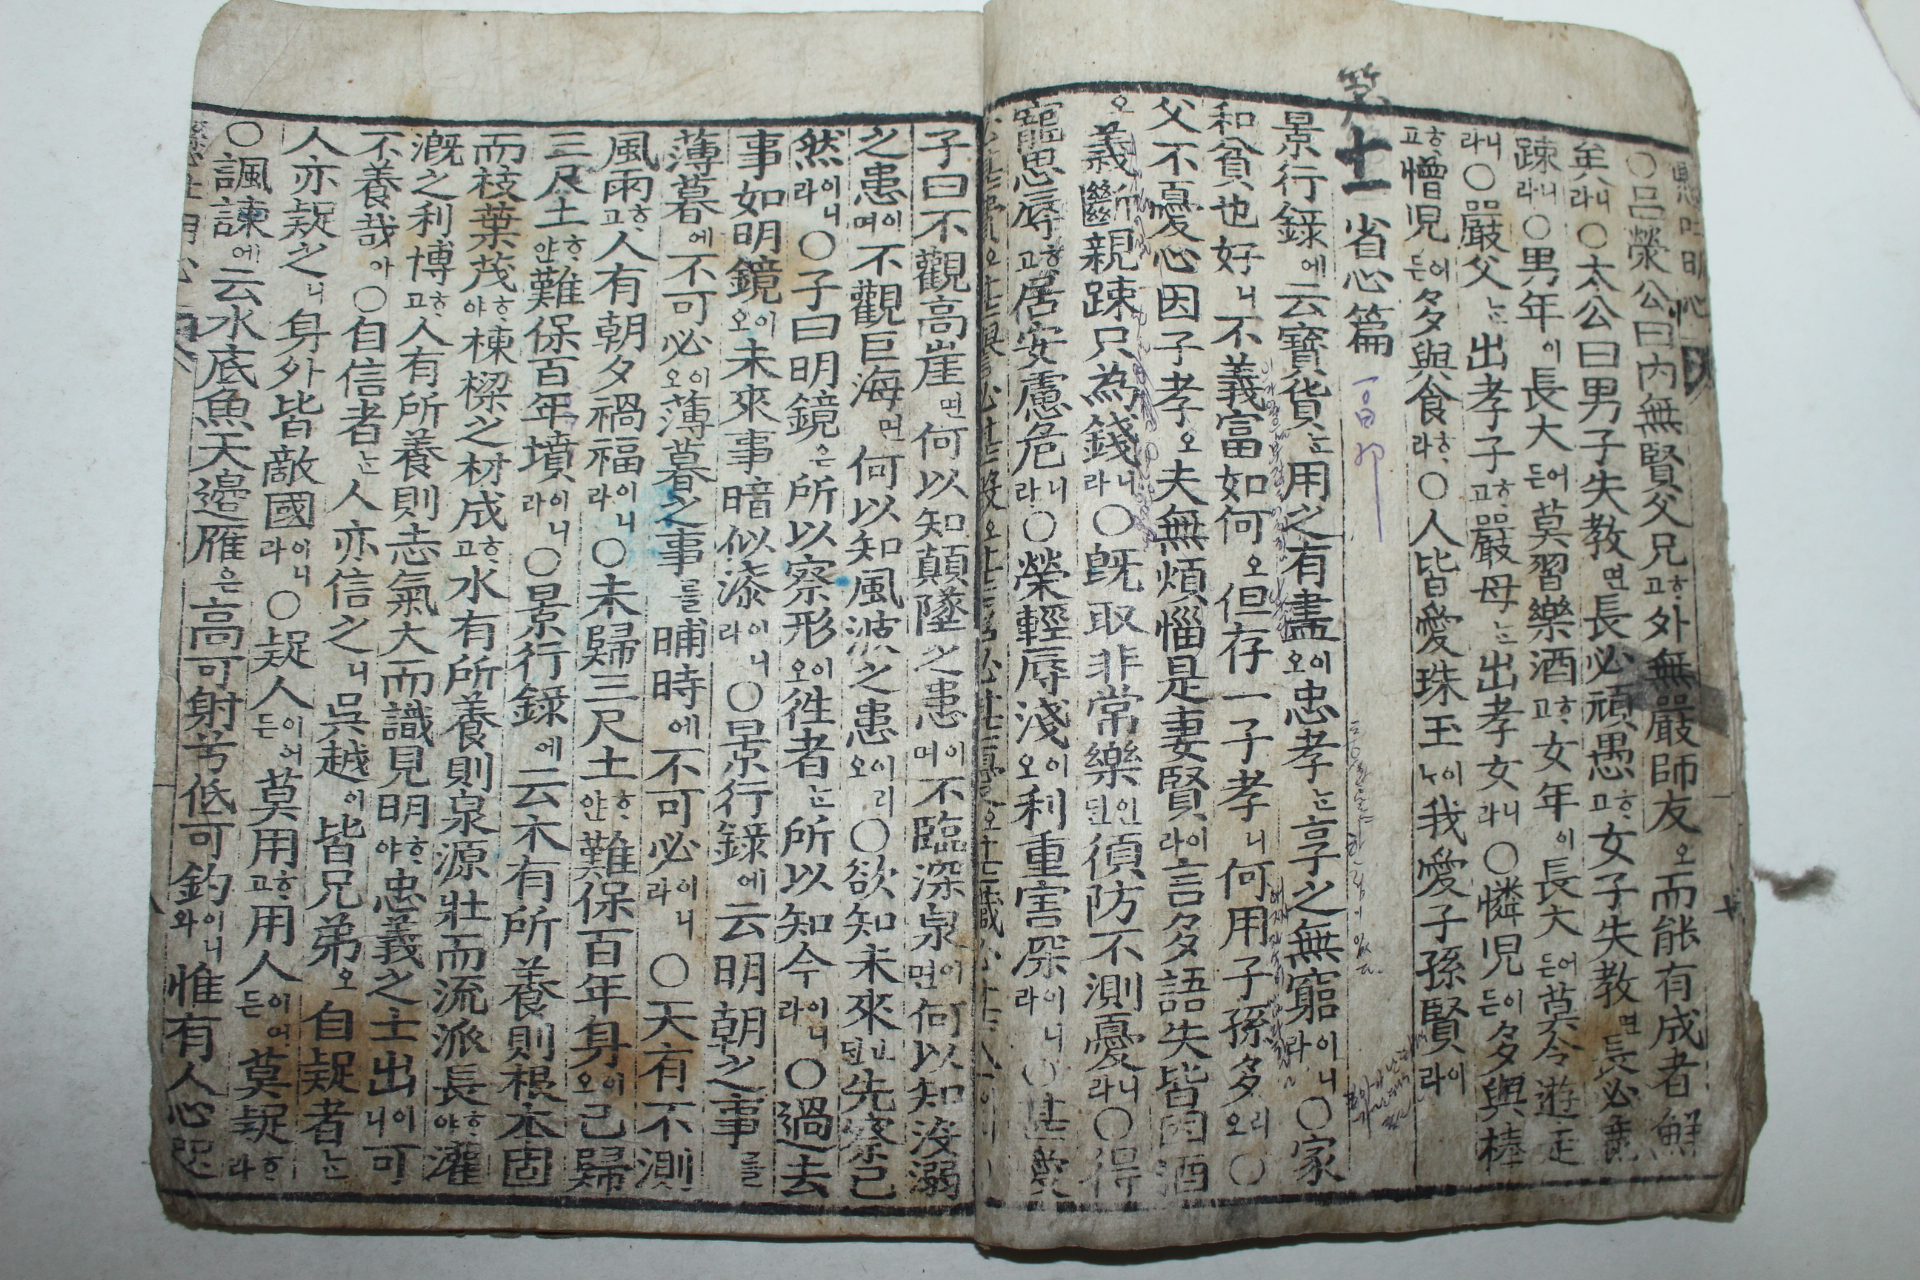 ○呂滎公曰內無賢父兄고ᄒᆞ外無嚴師友오而能有成者鮮
矣라니○太公曰男子失教면長必頑愚고ᄒᆞ女子失教면長必麁
踈라니○男年이長大든어莫習樂酒고ᄒᆞ女年이長大든어莫令遊走
라니○嚴父ᄂᆞᆫ出孝子고ᄒᆞ嚴母ᄂᆞᆫ出孝女라니○憐児든이多與棒
고ᄒᆞ憎児든어多與食라ᄒᆞ○人皆愛珠玉이我愛子孫賢라이
省心篇
景行錄에云寶貨ᄂᆞᆫ用之有盡오이忠孝ᄂᆞᆫ享之無窮라이니○家
和貧也好니不義富如何오但存一子孝니何用子孫多오리○
父不憂心因子孝오夫無煩惱是妻賢라이言多語失皆因酒
오義斷親踈只為錢라니○旣取非常樂딘인須防不測憂라니○得
寵思辱고ᄒᆞ居安慮危라니○榮輕辱淺오이利重害深라이니○甚愛
子曰不觀高崖면何以知顛墜之患며이不臨深泉면이何以知沒溺
之患며이不觀巨海면何以知風波之患오이리○欲知未來딘인先察已
然라이니○子曰明鏡은所以察形오이徃者ᄂᆞᆫ所以知今라이니○過去
事如明鏡오이未來事暗似漆라이니○景行錄에云明朝之事를
薄暮에不可必오이薄暮之事를晡時에不可必라이니○天有不測
風雨고ᄒᆞ人有朝夕禍福라이니○未歸三尺土얀ᄒᆞ難保百年身오이已歸
三尺土얀ᄒᆞ難保百年墳라이니○景行錄에云木有所養則根本固
而枝葉茂야ᄒᆞ棟樑之材成고ᄒᆞ水有所養則泉源壯而流派長야ᄒᆞ灌
漑之利博고ᄒᆞ人有所養則志氣大而識見明야ᄒᆞ忠義之士出니이可
不養哉아○自信者ᄂᆞᆫ人亦信之니吳越이皆兄弟오自疑者ᄂᆞᆫ
人亦疑之니身外皆敵國라이니○疑人든이어莫用고ᄒᆞ用人든이어莫疑라ᄒᆞ
○諷諫에云水底魚天邊雁은高可射芳低可釣와이니惟有人心咫